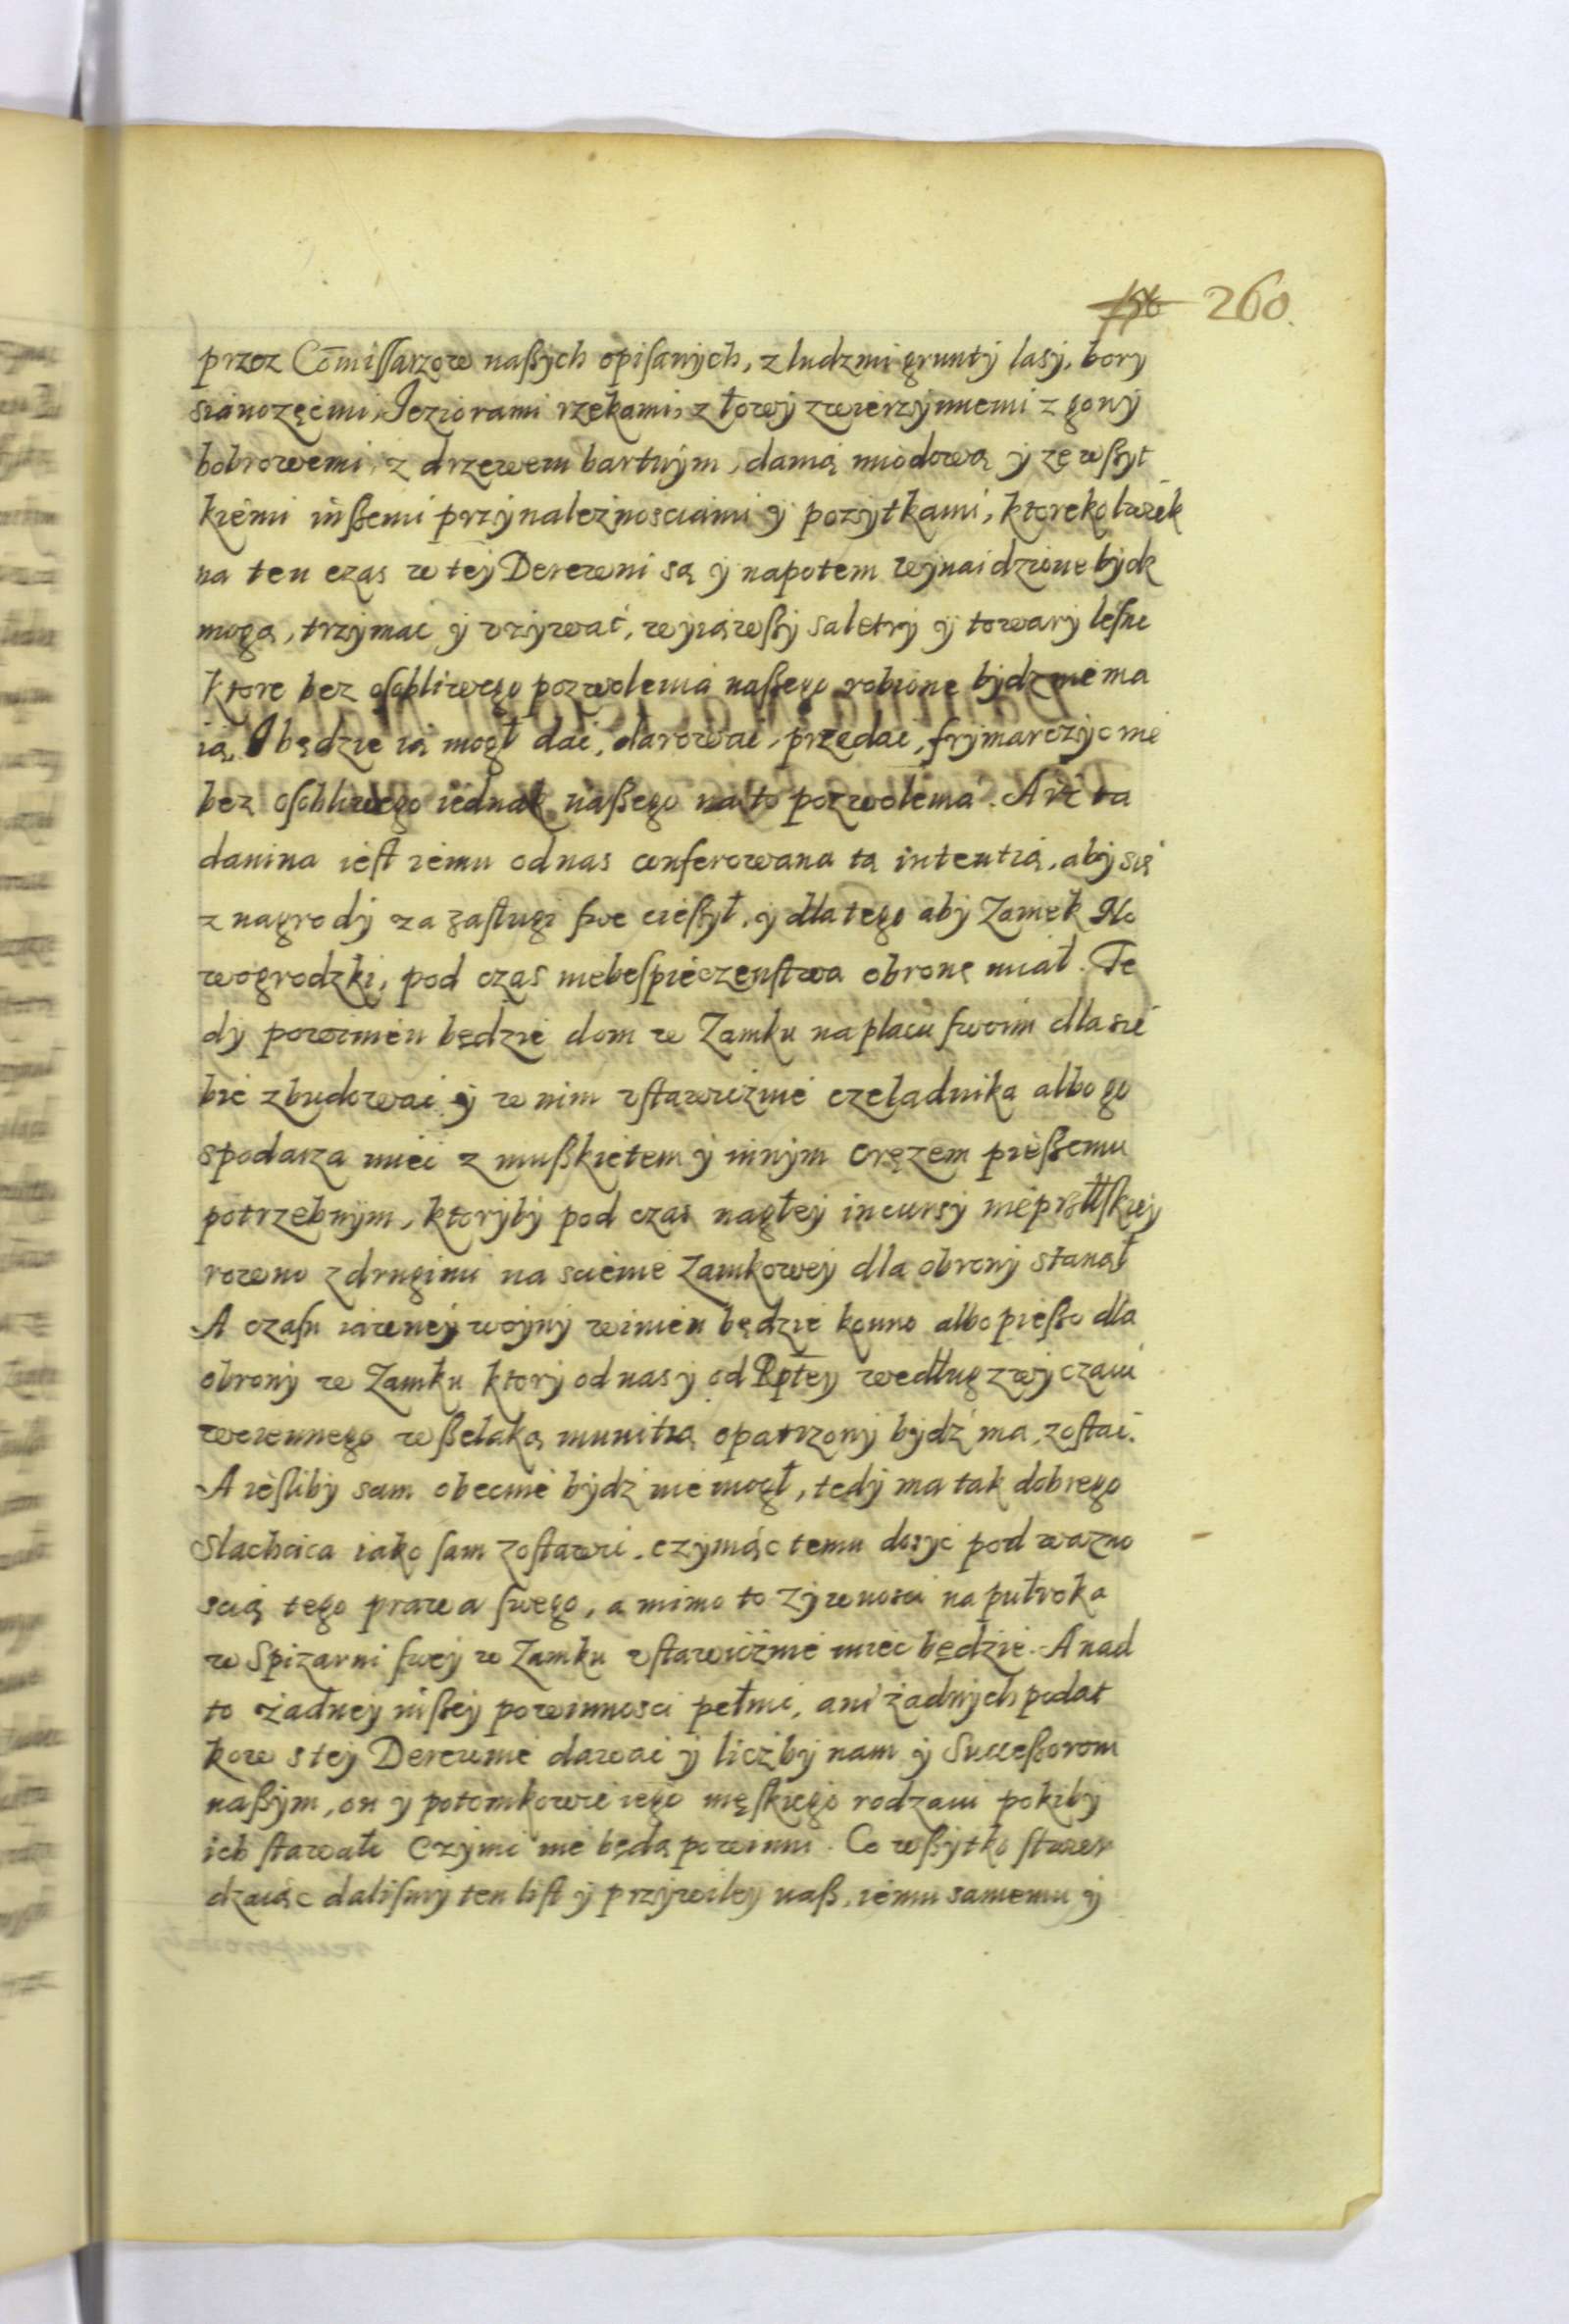 260.
przez Cōmissarzow naßych opisanych, z ludzmi grunty lasy, bory
sianozęćmi, Jeziorami rzekami, z łowy zwierzynnemi z gony
bobrowemi, z drzewem bartnym, danią miodową y ze wßyt
kiemi inßemi przynaleznosciami y pozytkami, ktorekolwiek
na ten czas w tey Derewni są y napotem wynaidzione bydz
mogą, trzymac y vzywać, wyiąwßy saletry y towary leśne
ktore bez osobliwego pozwolenia naßego robione bydz nie ma
ią. I będzie ią mogł dać, darować, przedać, frymarczyć nie
bez osobliwego iednak naßego na to pozwolenia. A iż ta
danina iest iemu od nas conferowana tą intentią, aby się
z nagrody za zasługi swe cießył, y dla tego aby Zamek No
wogrodzki, pod czas niebespieczenstwa obronę miał. Te
dy powinien będzie dom w Zamku na placu swoim dla sie
bie zbudować y w nim vstawicznie czeladnika albo go
spodarza mieć z mußkietem y innym orężem pießemu
potrzebnym, ktoryby pod czas nagłey incursy nieprzyaciel­skiey
rowno z drugimi na scienie Zamkowey dla obrony stanął
A czasu iawney woyny winien będzie konno albo pießo dla
obrony w Zamku ktory od nas y od Rptey według zwyczaiu
woiennego wßelaką munitią opatrzony bydź ma, zostać.
A iesliby sam obecnie bydź nie mogł, tedy ma tak dobrego
Slachcica iako sam zostawić, czyniąc temu dosyć pod wazno
scią tego prawa swego, a mimo to zywnosci na puł roka
w Spizarni swey w Zamku vstawicznie mieć będzie. A nad
to żadney inßey powinnosci pełnić, ani żadnych podat
kow s tey Derewnie dawać y liczby nam y Succeßorom
naßym, on y potomkowie iego męskiego rodzaiu pokiby
ich stawało czynić nie będą powinni. Co wßytko stwier
dzaiąc dalismy ten list y przywiley naß, iemu samemu y